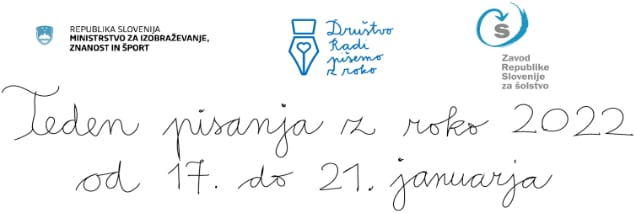 REPUBLIKA SLOVENIJA
MINISTRSTVO ZA IZOBRAŽEVANJE,
ZNANOST IN ŠPORT
Društvo
Radi
pišemo
z roko
Š
Zavod
Republike
Slovenije
za šolstvo
Teden pisanja z roko 2022
od 17. do 21. januarja